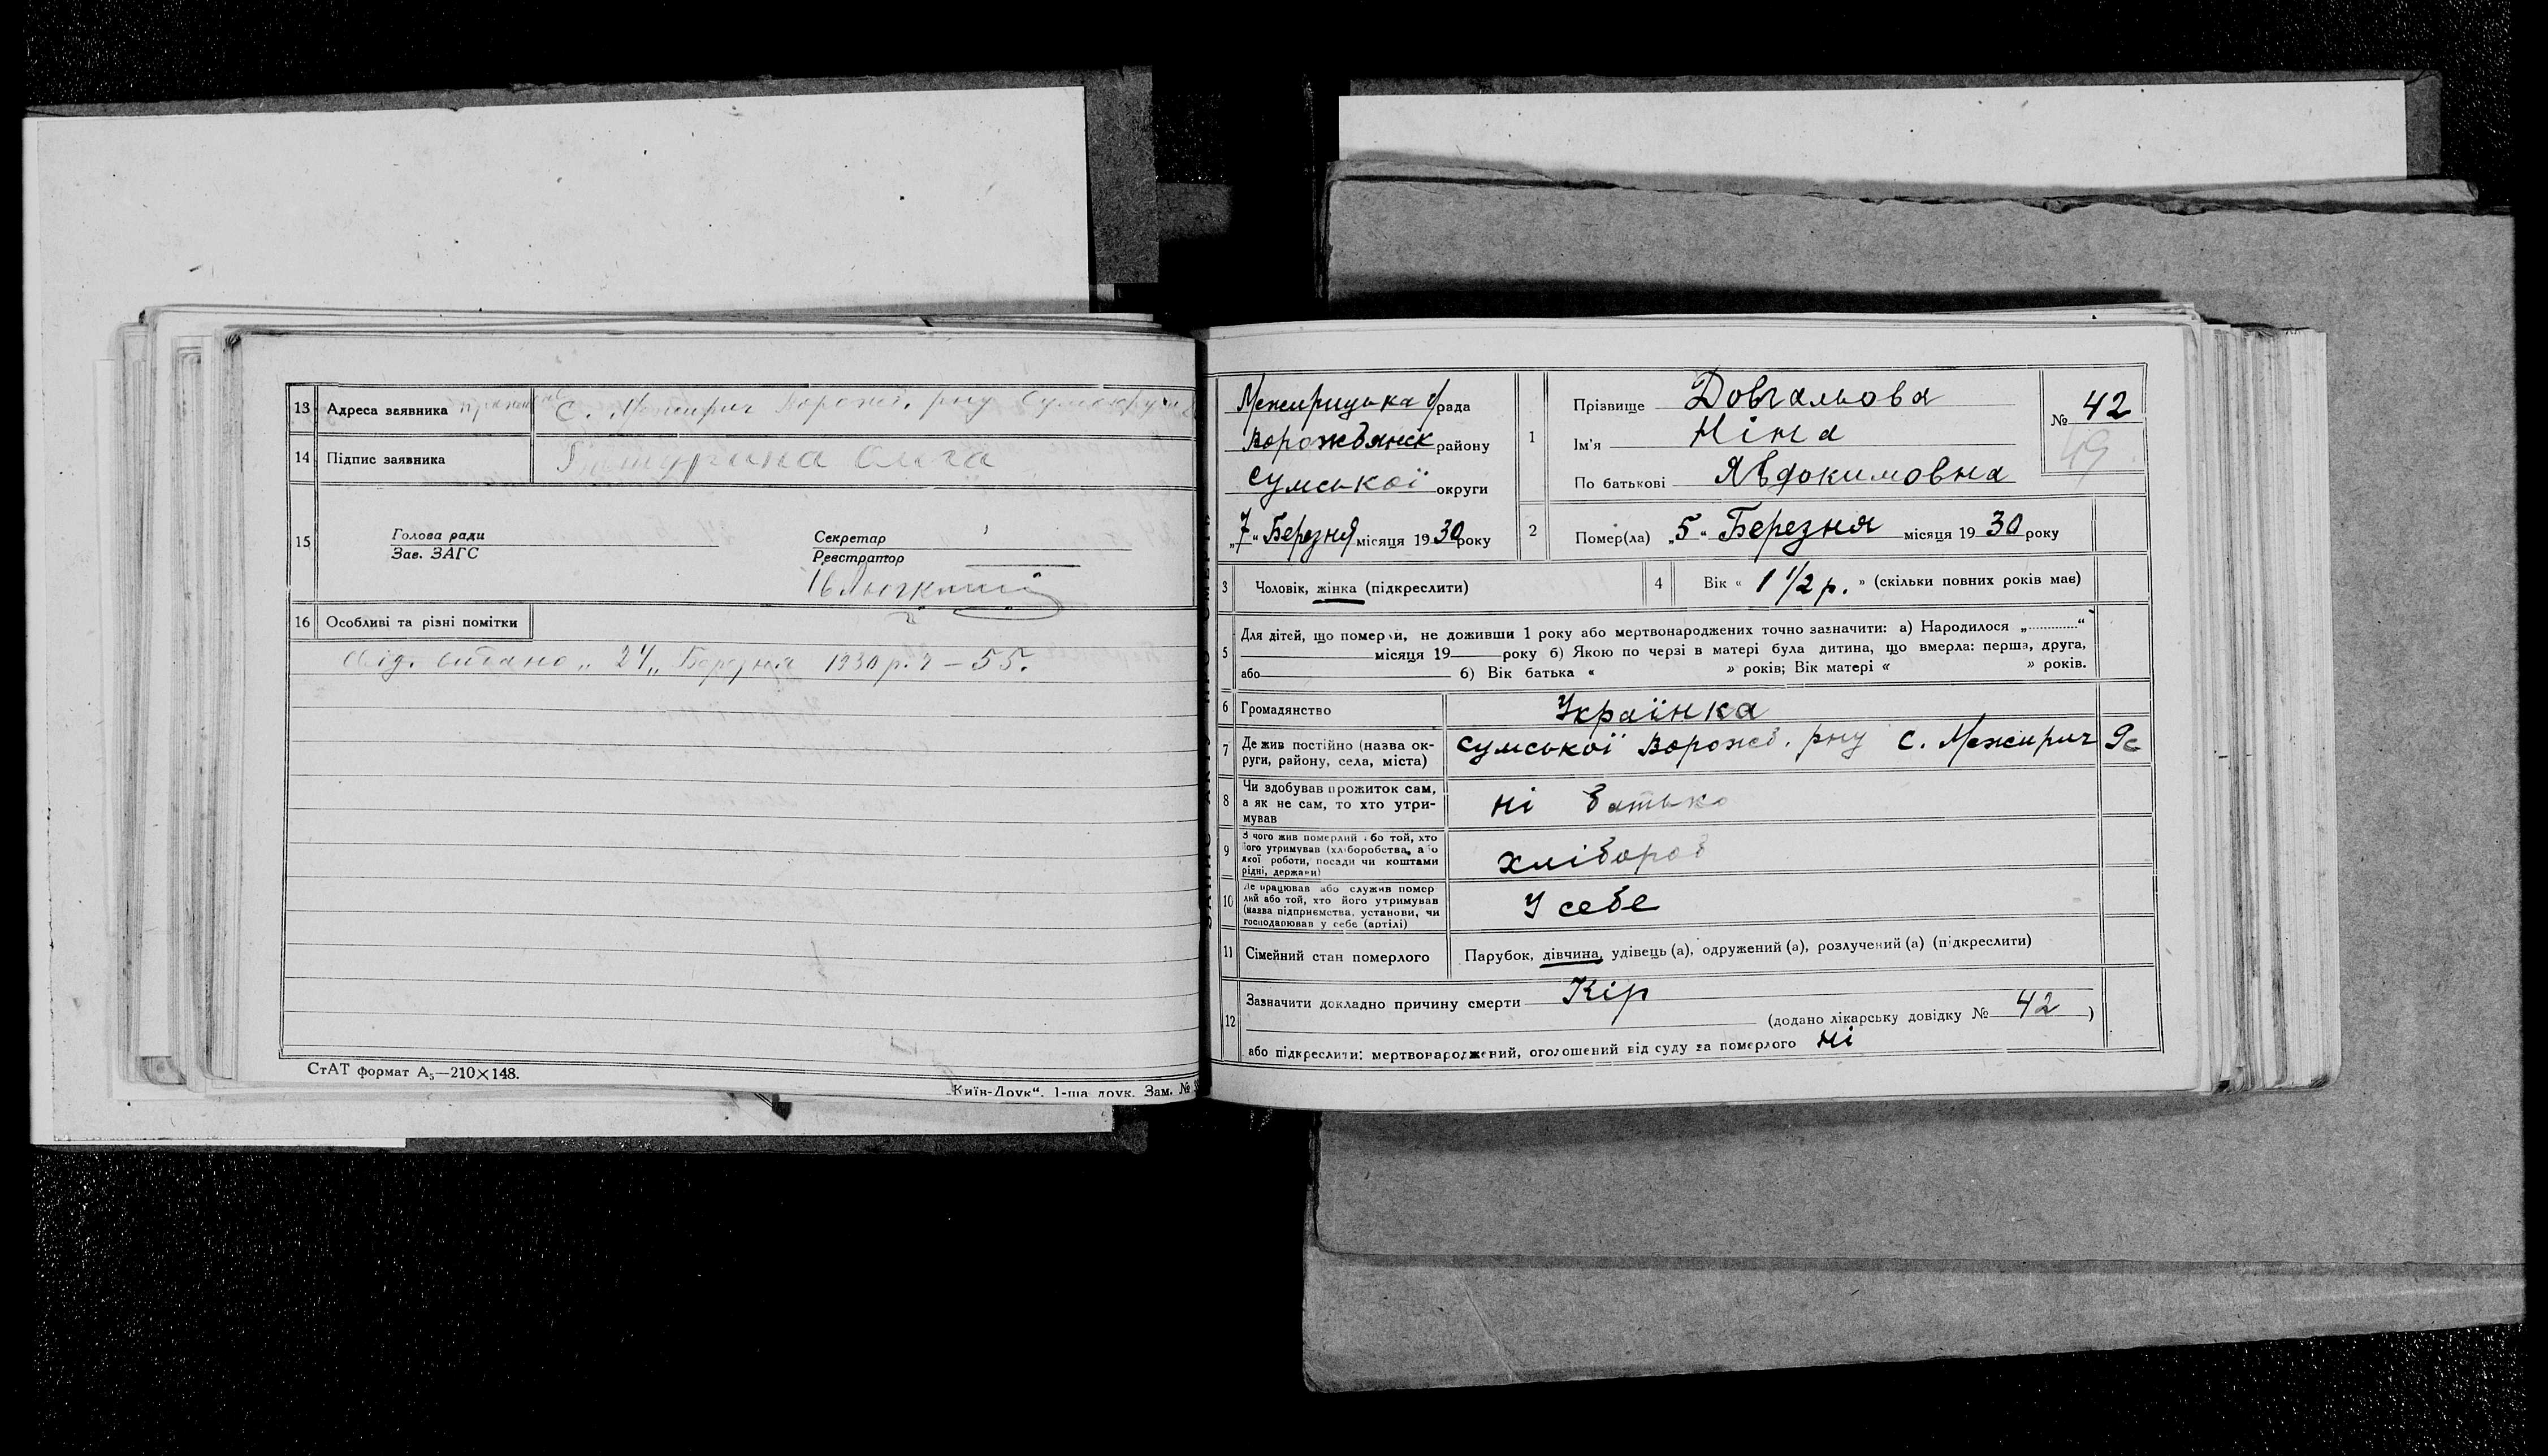 13 Адреса заявника с. Межирич Ворожб. рну Сумокруги
14 Підпис заявника Ольга
15 Голова ради Секретар
Зав. ЗАГС Реєстратор
16 Особливі та різні помітки
Від. видано „ 24 „ Березня 1930 р. – 55.
СтАТ формат А₅—210×148.
„Київ-Друк“. 1-ша друк. Зам. №
Межирицька с/рада
Ворожбянськ району
Сумської округи
„7“ Березня місяця 1930 року
1 Прізвище Довгальова
Ім'я Ніна
По батькові Явдокимовна
№ 42
49
2 Помер(ла) „5“ Березня місяця 1930 року
3 Чоловік, жінка (підкреслити)
4 Вік « 1 1/2 р. » (скільки повних років має)
5 Для дітей, що померли, не доживши 1 року або мертвонароджених точно зазначити: а) Народилося „ “
місяця 19 року б) Якою по черзі в матері була дитина, що вмерла: перша, друга,
або б) Вік батька « » років; Вік матері « » років.
6 Громадянство Українка
7 Де жив постійно (назва ок-
руги, району, села, міста) Сумської Ворожб. рну С. Межирич 9с
8 Чи здобував прожиток сам,
а як не сам, то хто утри-
мував ні батько
9 З чого жив померлий або той, хто
його утримував (хліборобства, або
якої роботи, посади чи коштами
рідні, держави) хлібороб
10 Де працював або служив помер-
лий або той, хто його утримував
(назва підприємства, установи, чи
господарював у себе (артілі) У себе
11 Сімейний стан померлого Парубок, дівчина, удівець (а), одружений (а), розлучений (а) (підкреслити)
12 Зазначити докладно причину смерти Кір
(додано лікарську довідку № 42 )
або підкреслити: мертвонароджений, оголошений від суду за померлого ні